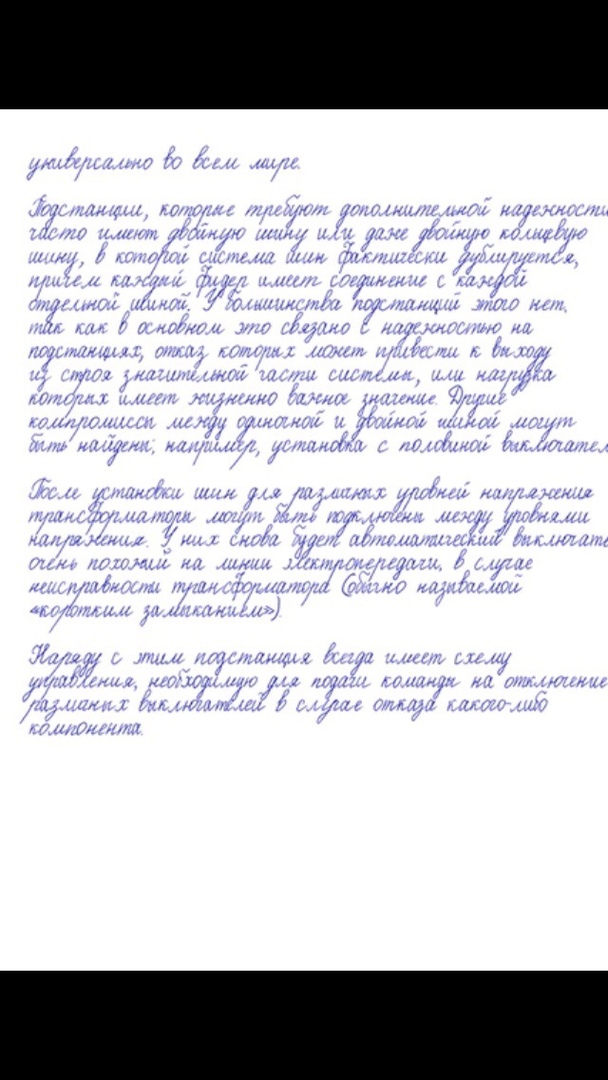 универсально во всем мире.
Подстанции, которые требуют дополнительной надежности
часто имеют двойную шину или даже двойную кольцевую
шину, в которой система шин фактически дублируется,
причем каждый фидер имеет соединение с каждой
отдельной шиной. У большинства подстанций этого нет.
так как в основном это связано с надежностью на
подстанциях, отказ которых может привести к выходу
из строя значительной части системы, или нагрузка
которых имеет жизненно важное значение. Другие
компромиссы между одиночной и двойной шиной могут
быть найдены; например, установка с половиной выключател
После установки шин для различных уровней напряжения
трансформаторы могут быть подключены между уровнями
напряжения. У них снова будет автоматический выключате
очень похожий на линии электропередачи, в случае
неисправности трансформатора (обычно называемой
«коротким замыканием»).
Наряду с этим подстанция всегда имеет схему
управления, необходимую для подачи команды на отключение
различных выключателей в случае отказа какого-либо
компонента.